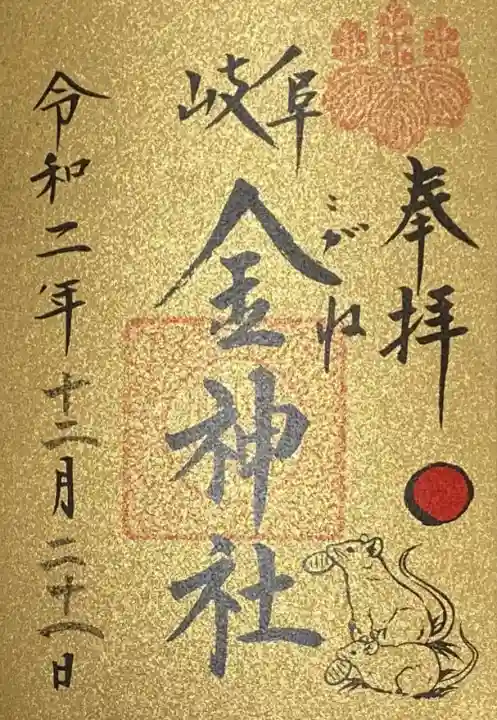 奉拝
岐阜
こがね
金神社
令和二年十二月二十八日